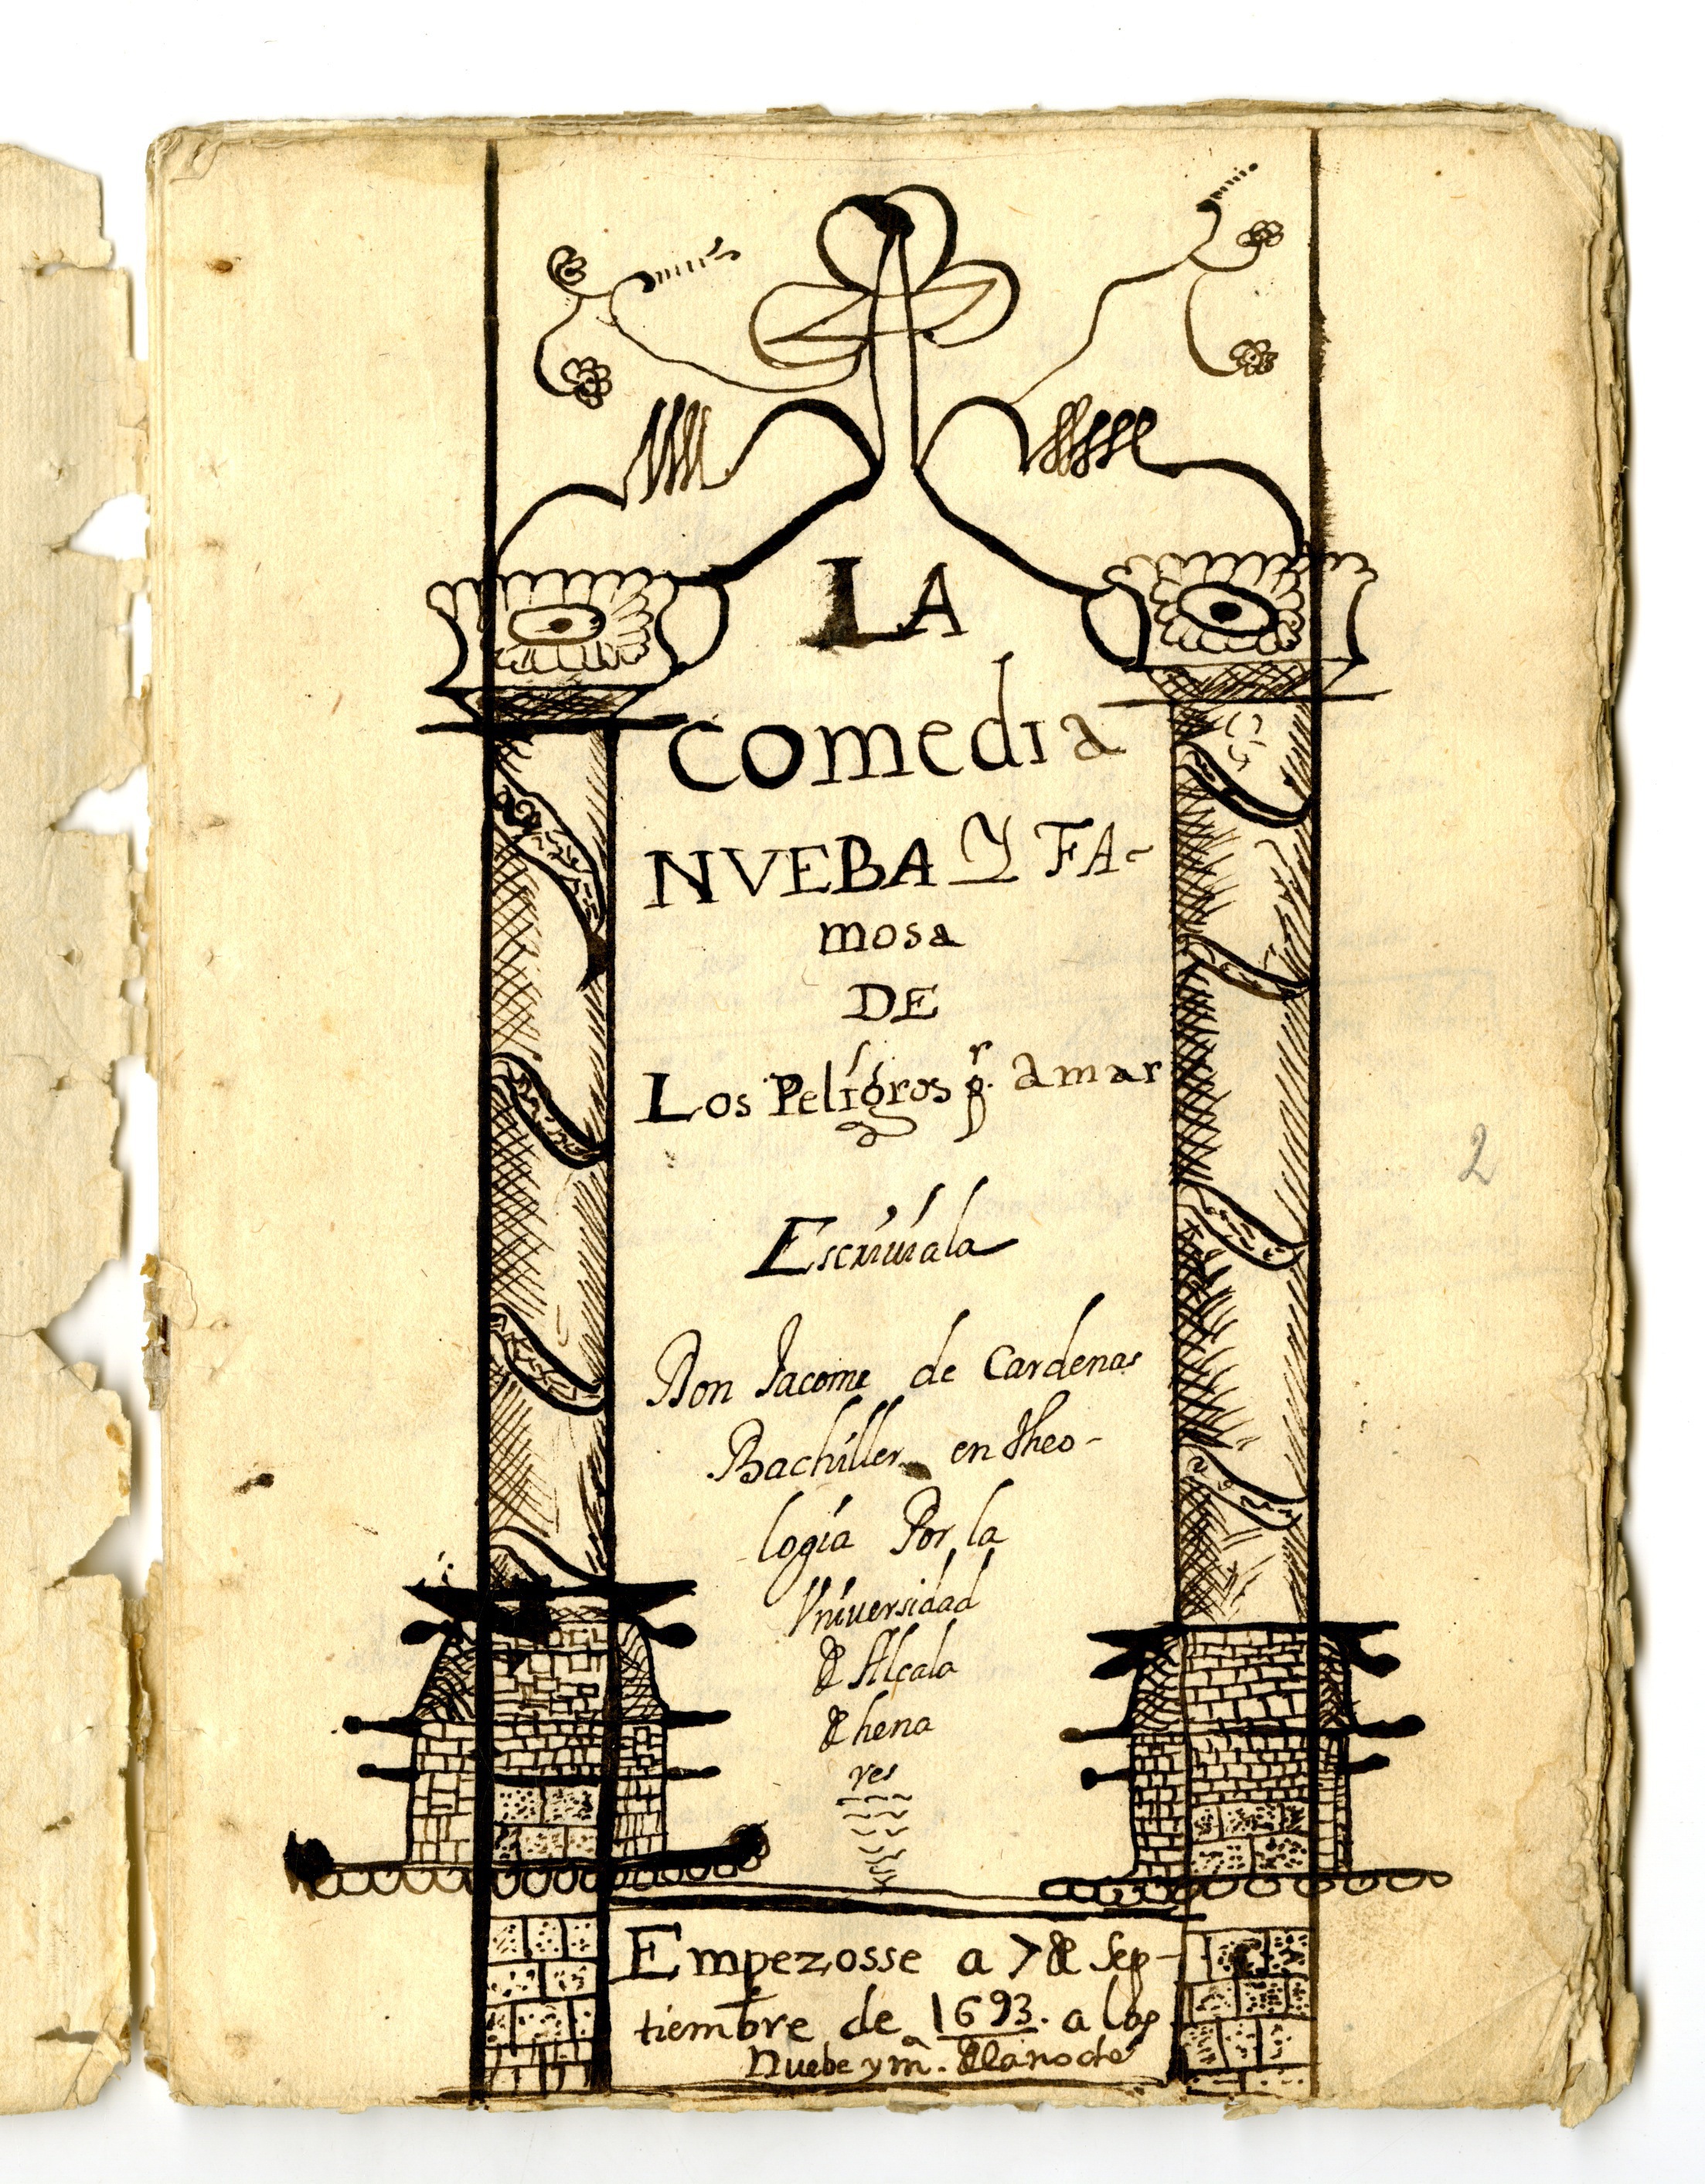 LA
comedia
NVEBA Y FA-
mosa
DE
Los Peligros pr. amar
2
Escriuiala
Don Iacome de Cardenas
Bachiller en theo-
logia Por la
Vniuersidad
de Alcala
de hena
res
Empezosse a 7 de Sep-
tiembre de 1693. a las
Nuebe y ma. de la noche